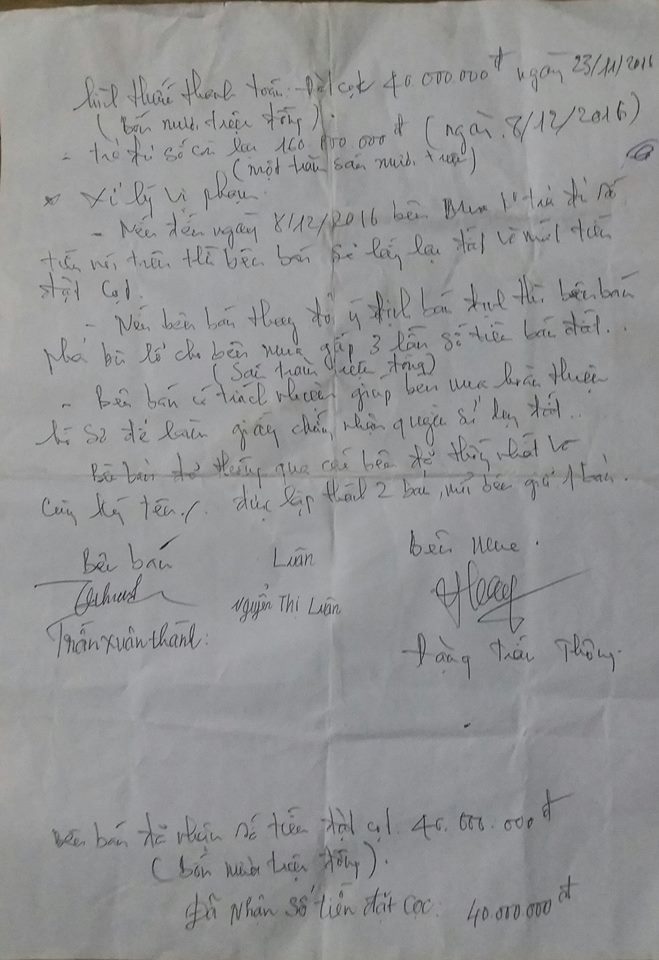 hình thức thanh toán: Đặt cọc 40.000.000đ ngày 23/11/2016
(Bốn mươi triệu đồng).
- trả đủ số còn lại 160.000.000đ (ngày 8/12/2016)
(một trăm sáu mươi triệu)
* Xử lý vi phạm.
- Nếu đến ngày 8/12/2016 bên mua ko trả đủ số
tiền nói trên thì bên bán sẽ lấy lại đất và mất tiền
đặt cọc.
- Nếu bên bán thay đổi ý định bán đất thì bên bán
phải bù lỗ cho bên mua gấp 3 lần số tiền bán đất..
(Sáu trăm triệu đồng)
- Bên bán có trách nhiệm giúp bên mua hoàn thiện
hồ sơ để làm giấy chứng nhận quyền sử dụng đất..
đã thông qua các bên đã thống nhất và
cùng ký tên./. được lập thành 2 bản, mỗi bên giữ 1 bản.
Bên bán Luân Bên mua.
Nguyễn Thị Luân
Trần Xuân thành: Đặng Trần Thông.
Bên bán đã nhận số tiền đặt cọc. 40.000.000đ
(Bốn mươi triệu đồng).
Đã Nhận số tiền đặt cọc: 40.000.000đ